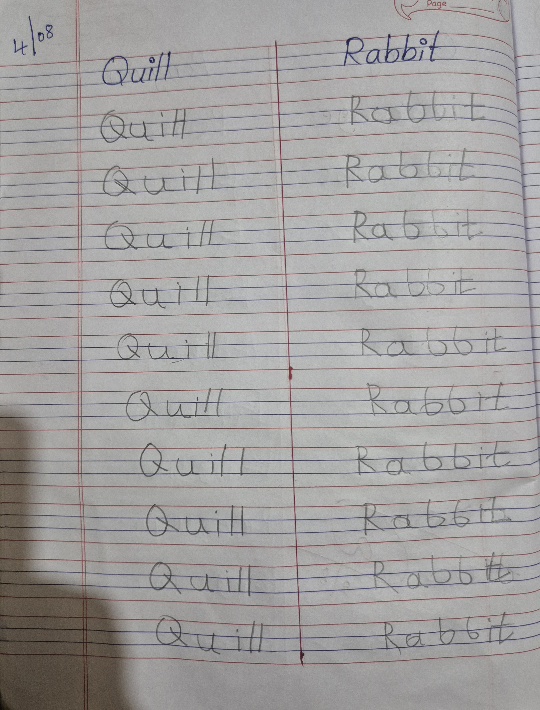 Page
4/08
Quill Rabbit
Quill Rabbit
Quill Rabbit
Quill Rabbit
Quill Rabbit
Quill Rabbit
Quill Rabbit
Quill Rabbit
Quill Rabbit
Quill Rabbit
Quill Rabbit